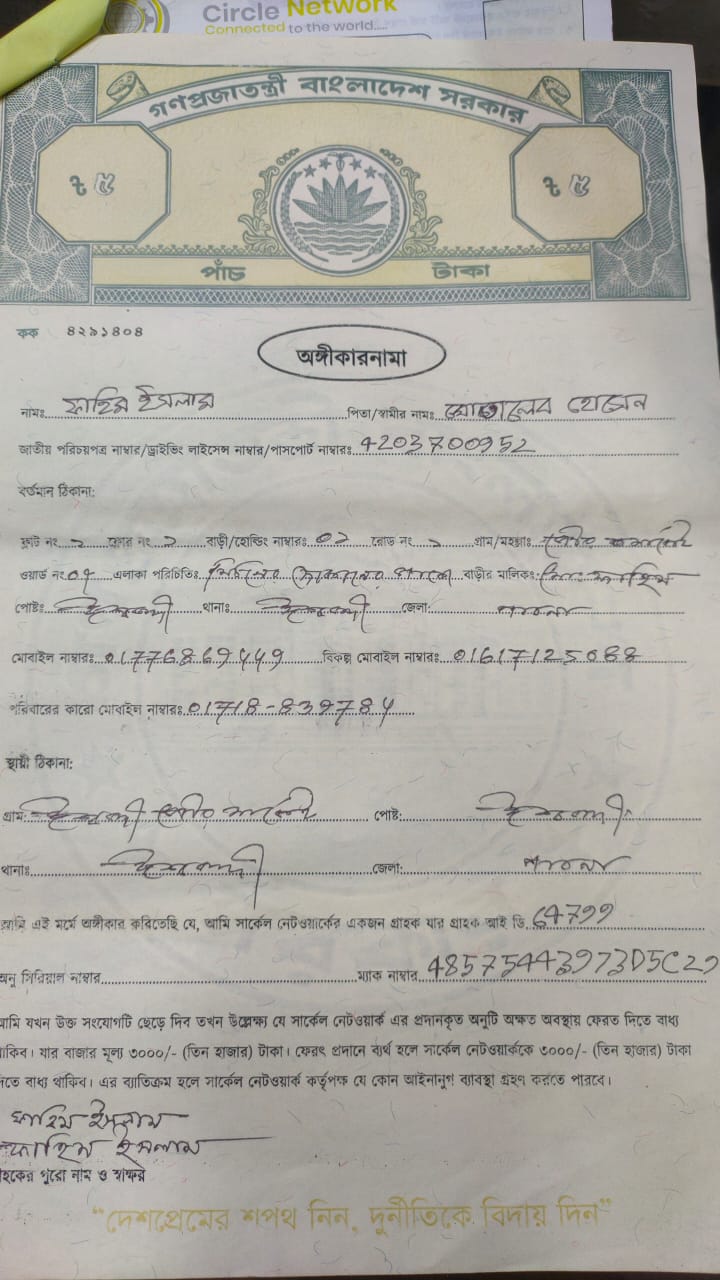 Circle Network
Connected to the world....
গণপ্রজাতন্ত্রী বাংলাদেশ সরকার
৳ ৫ ৳ ৫
পাঁচ টাকা
কক ৪২৯১৪০৪
অঙ্গীকারনামা
নামঃ ফাহিম ইসলাম পিতা/স্বামীর নামঃ মোতালেব হোসেন
জাতীয় পরিচয়পত্র নাম্বার/ড্রাইভিং লাইসেন্স নাম্বার/পাসপোর্ট নাম্বারঃ 4203700952
বর্তমান ঠিকানা:
ফ্লাট নং ২ ফ্লোর নং ২ বাড়ী/হোল্ডিং নাম্বারঃ ০২ রোড নং গ্রাম/মহল্লাঃ
ওয়ার্ড নং এলাকা পরিচিতিঃ দোকানের পাশে বাড়ীর মালিকঃ মোঃ ফাহিম
পোষ্টঃ ঈশ্বরদী থানাঃ ঈশ্বরদী জেলা: পাবনা
মোবাইল নাম্বারঃ বিকল্প মোবাইল নাম্বারঃ 01617125088
পরিবারের কারো মোবাইল নাম্বারঃ 01718-839784
স্থায়ী ঠিকানা:
গ্রাম: ঈশ্বরদী পোষ্ট: ঈশ্বরদী
থানাঃ ঈশ্বরদী জেলা: পাবনা
আমি এই মর্মে অঙ্গীকার করিতেছি যে, আমি সার্কেল নেটওয়ার্কের একজন গ্রাহক যার গ্রাহক আই ডি. 64799
অনু সিরিয়াল নাম্বার ম্যাক নাম্বার 48575443973D5C29
আমি যখন উক্ত সংযোগটি ছেড়ে দিব তখন উল্লেক্ষ্য যে সার্কেল নেটওয়ার্ক এর প্রদানকৃত অনুটি অক্ষত অবস্থায় ফেরত দিতে বাধ্য
থাকিব। যার বাজার মূল্য ৩০০০/- (তিন হাজার) টাকা। ফেরৎ প্রদানে ব্যর্থ হলে সার্কেল নেটওয়ার্ককে ৩০০০/- (তিন হাজার) টাকা
দিতে বাধ্য থাকিব। এর ব্যতিক্রম হলে সার্কেল নেটওয়ার্ক কর্তৃপক্ষ যে কোন আইনানুগ ব্যবস্থা গ্রহণ করতে পারবে।
ফাহিম ইসলাম
ফাহিম ইসলাম
গ্রাহকের পুরো নাম ও স্বাক্ষর
“দেশপ্রেমের শপথ নিন, দুর্নীতিকে বিদায় দিন”